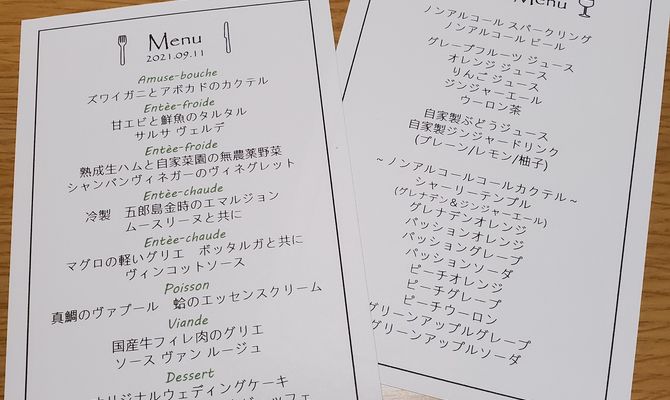 Menu
2021.09.11
Amuse-bouche
ズワイガニとアボカドのカクテル
Entèe-froide
甘エビと鮮魚のタルタル
サルサ ヴェルデ
Entèe-froide
熟成生ハムと自家菜園の無農薬野菜
シャンパンヴィネガーのヴィネグレット
Entèe-chaude
冷製 五郎島金時のエマルジョン
ムースリーヌと共に
Entèe-chaude
マグロの軽いグリエ ボッタルガと共に
ヴィンコットソース
Poisson
真鯛のヴァプール 蛤のエッセンスクリーム
Viande
国産牛フィレ肉のグリエ
ソース ヴァン ルージュ
Dessert
オリジナルウェディングケーキ
Menu
ノンアルコール スパークリング
ノンアルコール ビール
グレープフルーツ ジュース
オレンジ ジュース
りんご ジュース
ジンジャーエール
ウーロン茶
自家製ぶどうジュース
自家製ジンジャードリンク
(プレーン/レモン/柚子)
~ノンアルコールコールカクテル~
シャーリーテンプル
(グレナデン&ジンジャーエール)
グレナデンオレンジ
パッションオレンジ
パッショングレープ
パッションソーダ
ピーチオレンジ
ピーチグレープ
ピーチウーロン
グリーンアップルグレープ
グリーンアップルソーダ